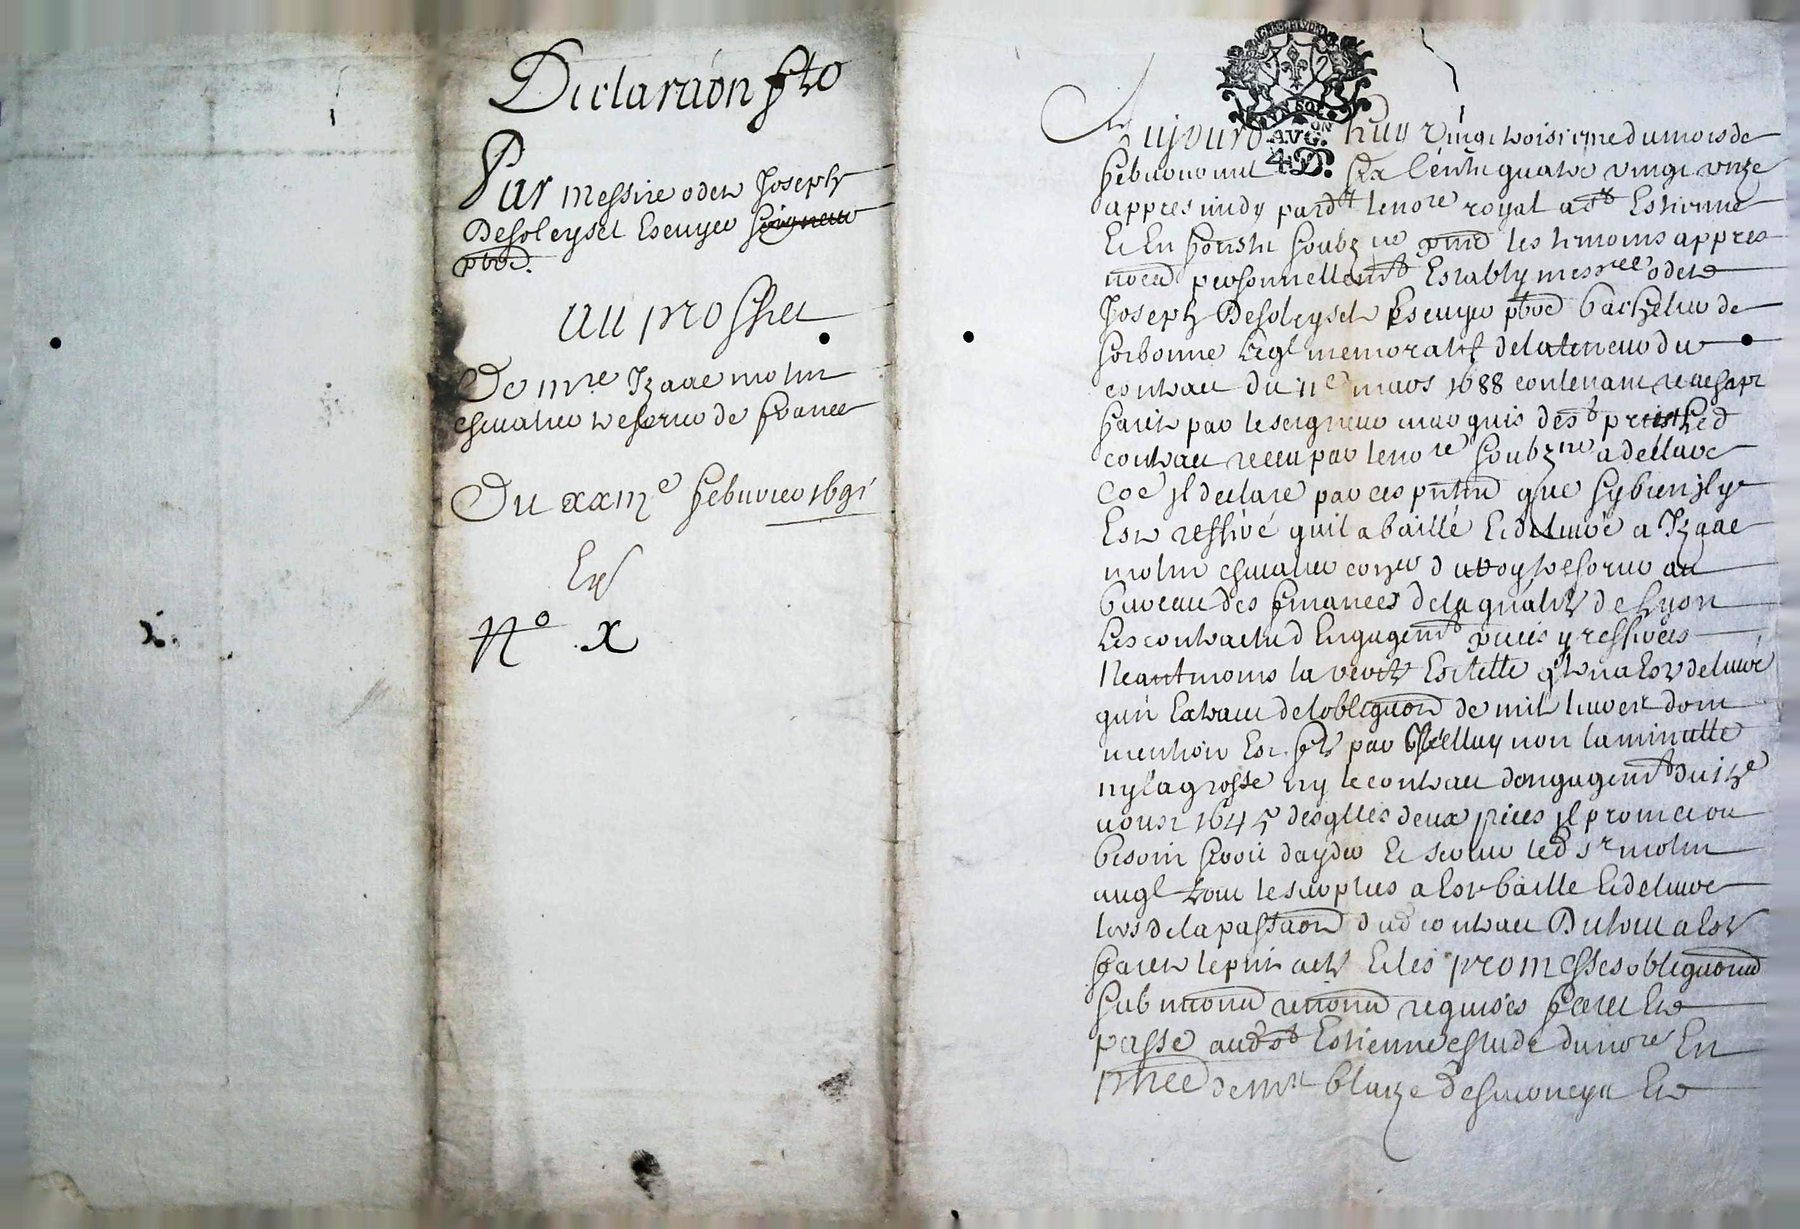 Declaration fte
Par messire odet Joseph
De soleysel Escuyer seigneur
pbre.
Au proffiet
De mre Izaac molin
chevalier tresorier de france
Du xxiije febvrier 1691
Exp
No x
Aujourdhuy vingt troisieme du mois de
AVG.
4 D.
febvrier mil six cents quatre vingt unze
appres midy pardt le nore royal a st Estienne
Et En forests soubzne pnts les tesmoins appres
noes personnellemt Estably messire odet
Joseph De soleysel Escuyer pbre bachelier de
sorbonne leql memoratif de la teneur du
contract du 11e mars 1688 contenant
faict par le seigneur marquis de st priest led
contract receu par le nore soubzne a declare
coe Il declare par ces pntes que sy bien Il y
Est reserve quil a baillé Et delivré a Izaac
molin chevalier coner du roy tresorier au
bureau des finances de la gnalite de Lyon
Les contracts d Engagemt y
Neantmoins la verite Est telle ql na Est delivré
qun Extraict de lobligaon de mil livres dont
mention Est fte par non la minutte
ny la grosse ny le contract dengagemt du
aoust 1645 desqlles deux pieces il promet au
besoin scavoir dayder Et servir led sr molin
auql tout le surplus a Est baille Et delivre
lors de la passaon dud contract Dutout a Est
faict le pnt acte Et les promesses obligaons
submitions renons requises faict Et
passe aud st Estienne estude du nore En
pnce de mre blaize desvoneys Et